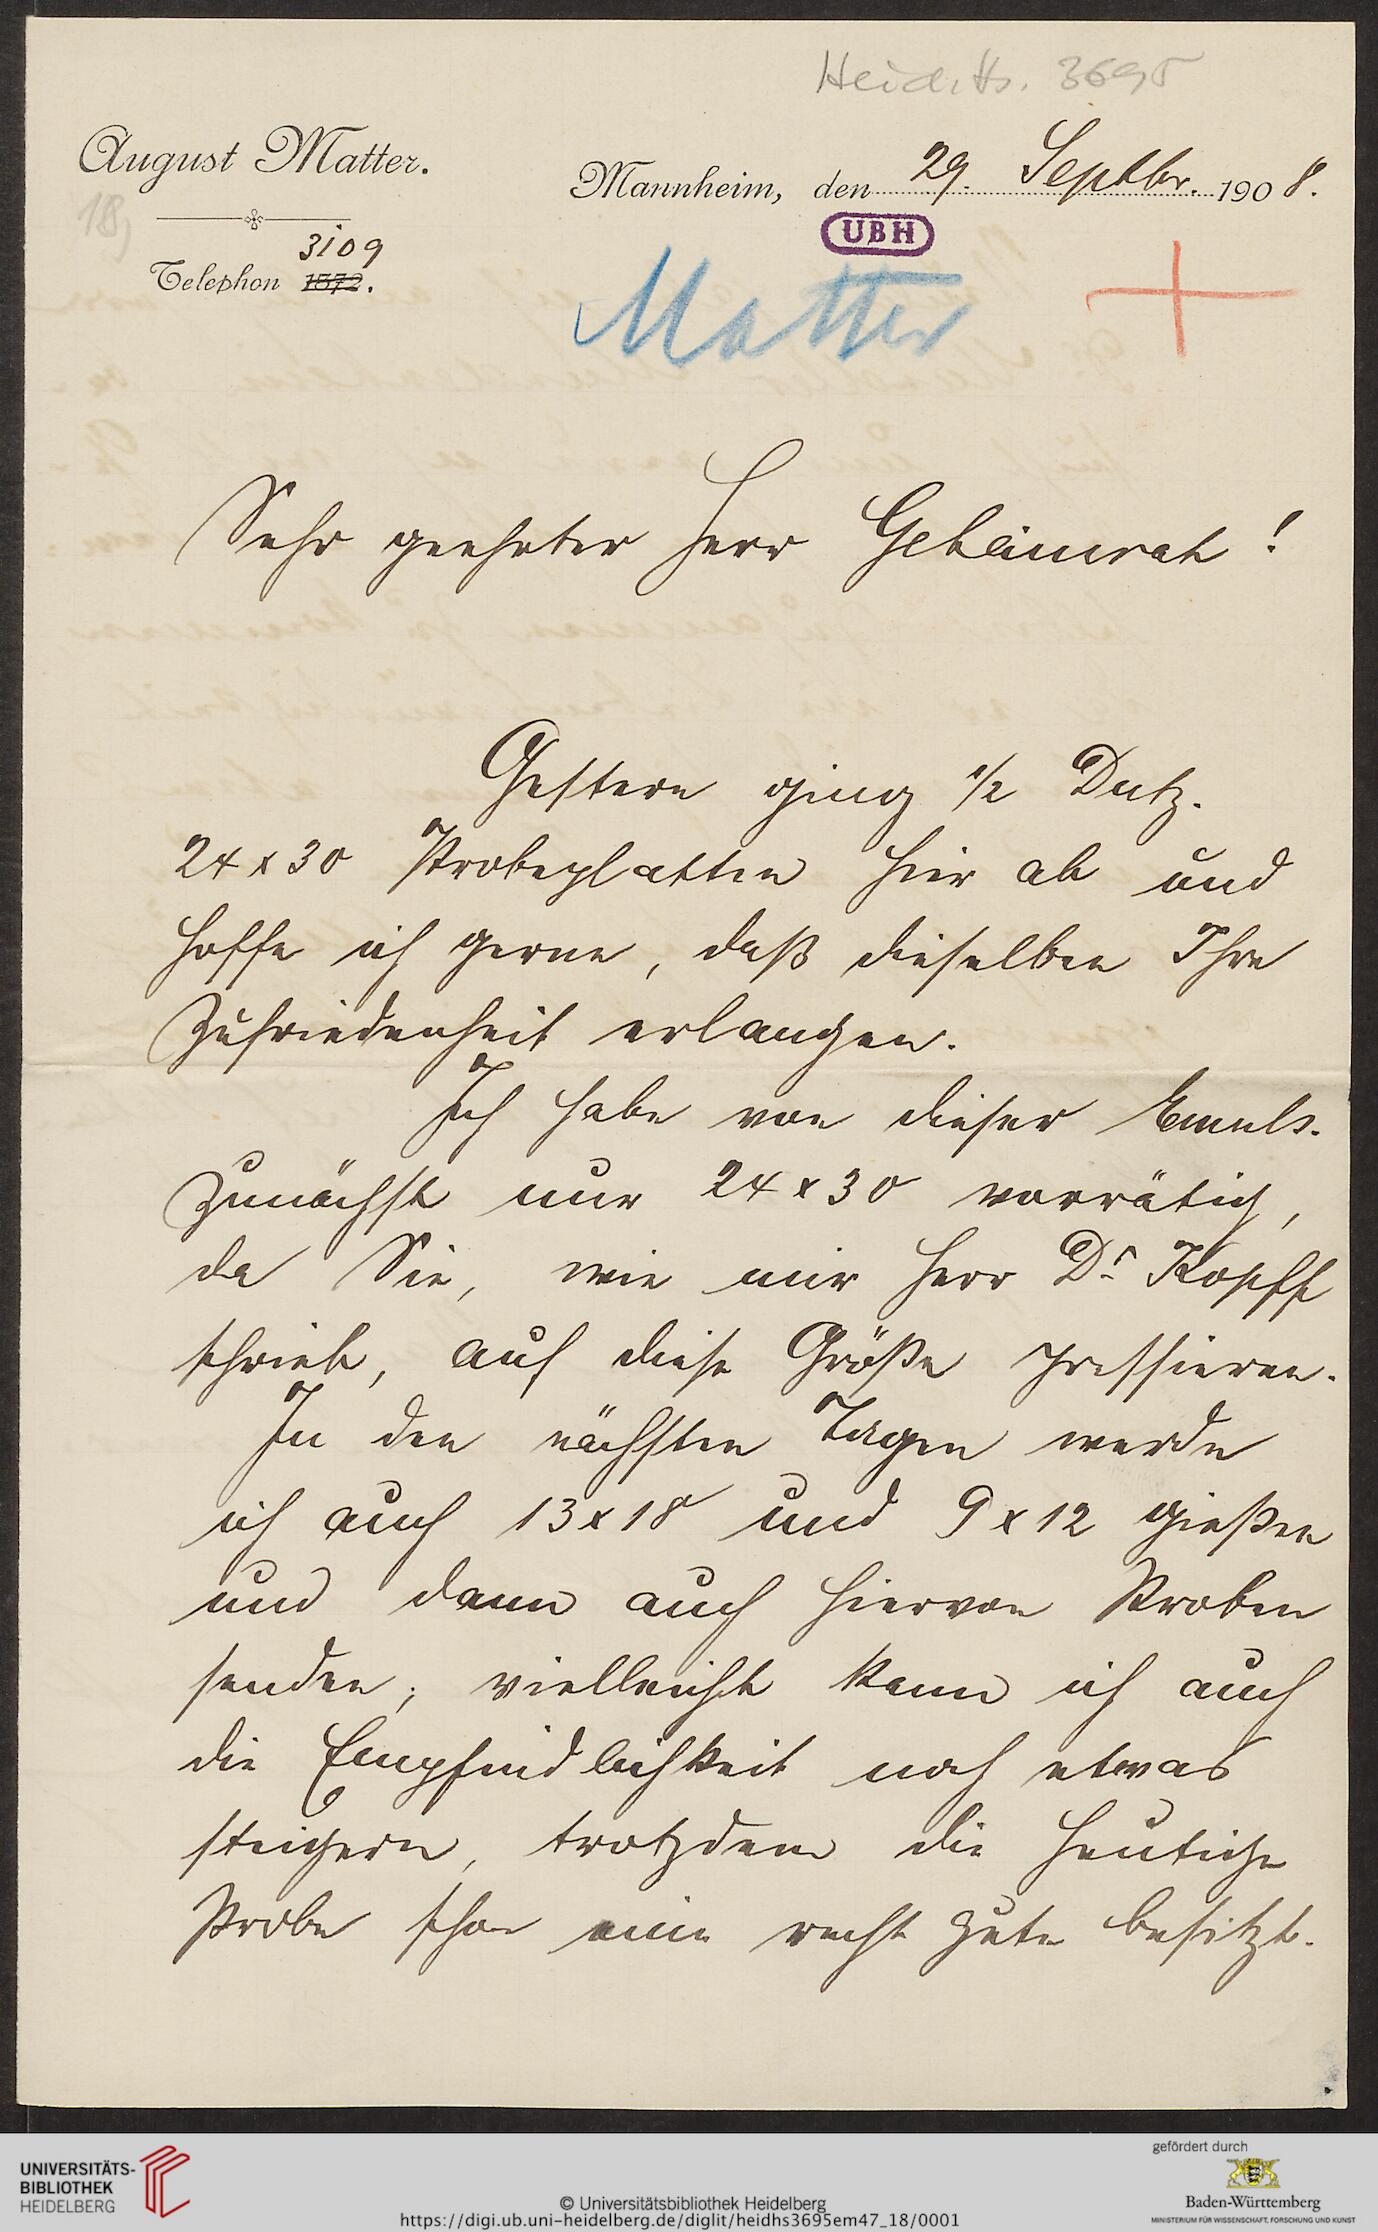 Heid. Hs. 3695
August Matter.
Mannheim, den 29. Septbr. 1908.
18,
UBH
3109
Telephon 1572.
Matter
Sehr geehrter Herr Geheimrat!
Gestern ging 1/2 Dutz.
24 x 30 Probeplatten hier ab und
hoffe ich gerne, daß dieselben Ihre
Zufriedenheit erlangen.
Ich habe von dieser Emuls.
zunächst nur 24 x 30 vorrätig,
da Sie, wie mir Herr Dr Kopff
schrieb, auf diese Größe pressieren.
In den nächsten Tagen werde
ich auch 13 x 18 und 9 x 12 gießen
und dann auch hiervon Proben
senden; vielleicht kann ich auch
die Empfindlichkeit noch etwas
steigern, trotzdem die heutige
Probe schon eine recht gute besitzt.
UNIVERSITÄTS-
BIBLIOTHEK
HEIDELBERG
© Universitätsbibliothek Heidelberg
https://digi.ub.uni-heidelberg.de/diglit/heidhs3695em47_18/0001
gefördert durch
Baden-Württemberg
MINISTERIUM FÜR WISSENSCHAFT, FORSCHUNG UND KUNST